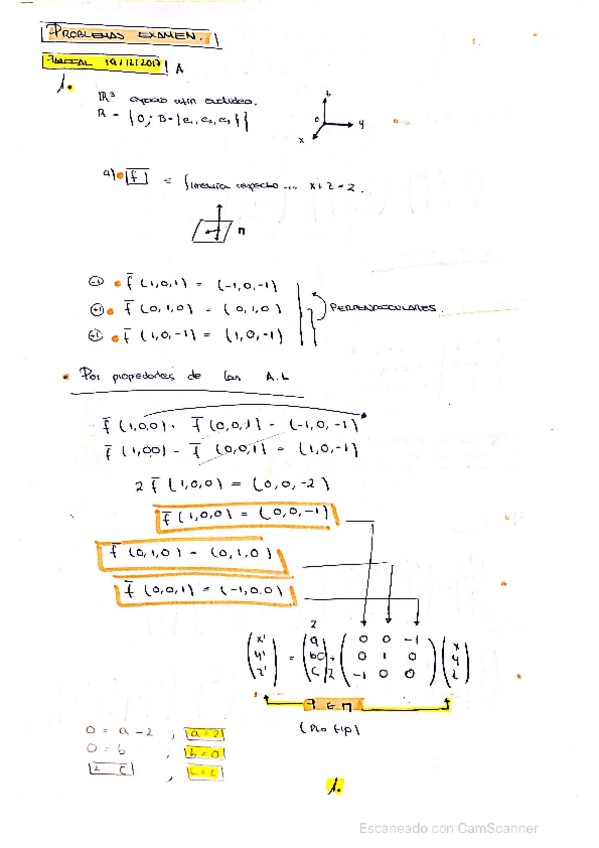 PROBLEMAS EXAMEN.
PARCIAL 19/12/2017 A
1.
ℝ³ espacio afín euclídeo.
R = {O; B={e₁, e₂, e₃}}
z
o
y
x
a) f = Simetría respecto ... x+z=2.
π
-1 f̄(1,0,1) = (-1,0,-1)
+1 f̄(0,1,0) = (0,1,0)
PERPENDICULARES.
+1 f̄(1,0,-1) = (1,0,-1)
Por propiedades de las A.L
f̄(1,0,0) + f̄(0,0,1) = (-1,0,-1)
f̄(1,0,0) - f̄(0,0,1) = (1,0,-1)
2 f̄(1,0,0) = (0,0,-2)
f̄(1,0,0) = (0,0,-1)
f̄(0,1,0) = (0,1,0)
f̄(0,0,1) = (-1,0,0)
2
(x') = (a) + (0 0 -1) (x)
(y') (b 0) (0 1 0) (y)
(z') (c 2) (-1 0 0) (z)
∈ π
0 = a - 2, a = 2
0 = b, b = 0
2 c, c = 2
1.
Escaneado con CamScanner